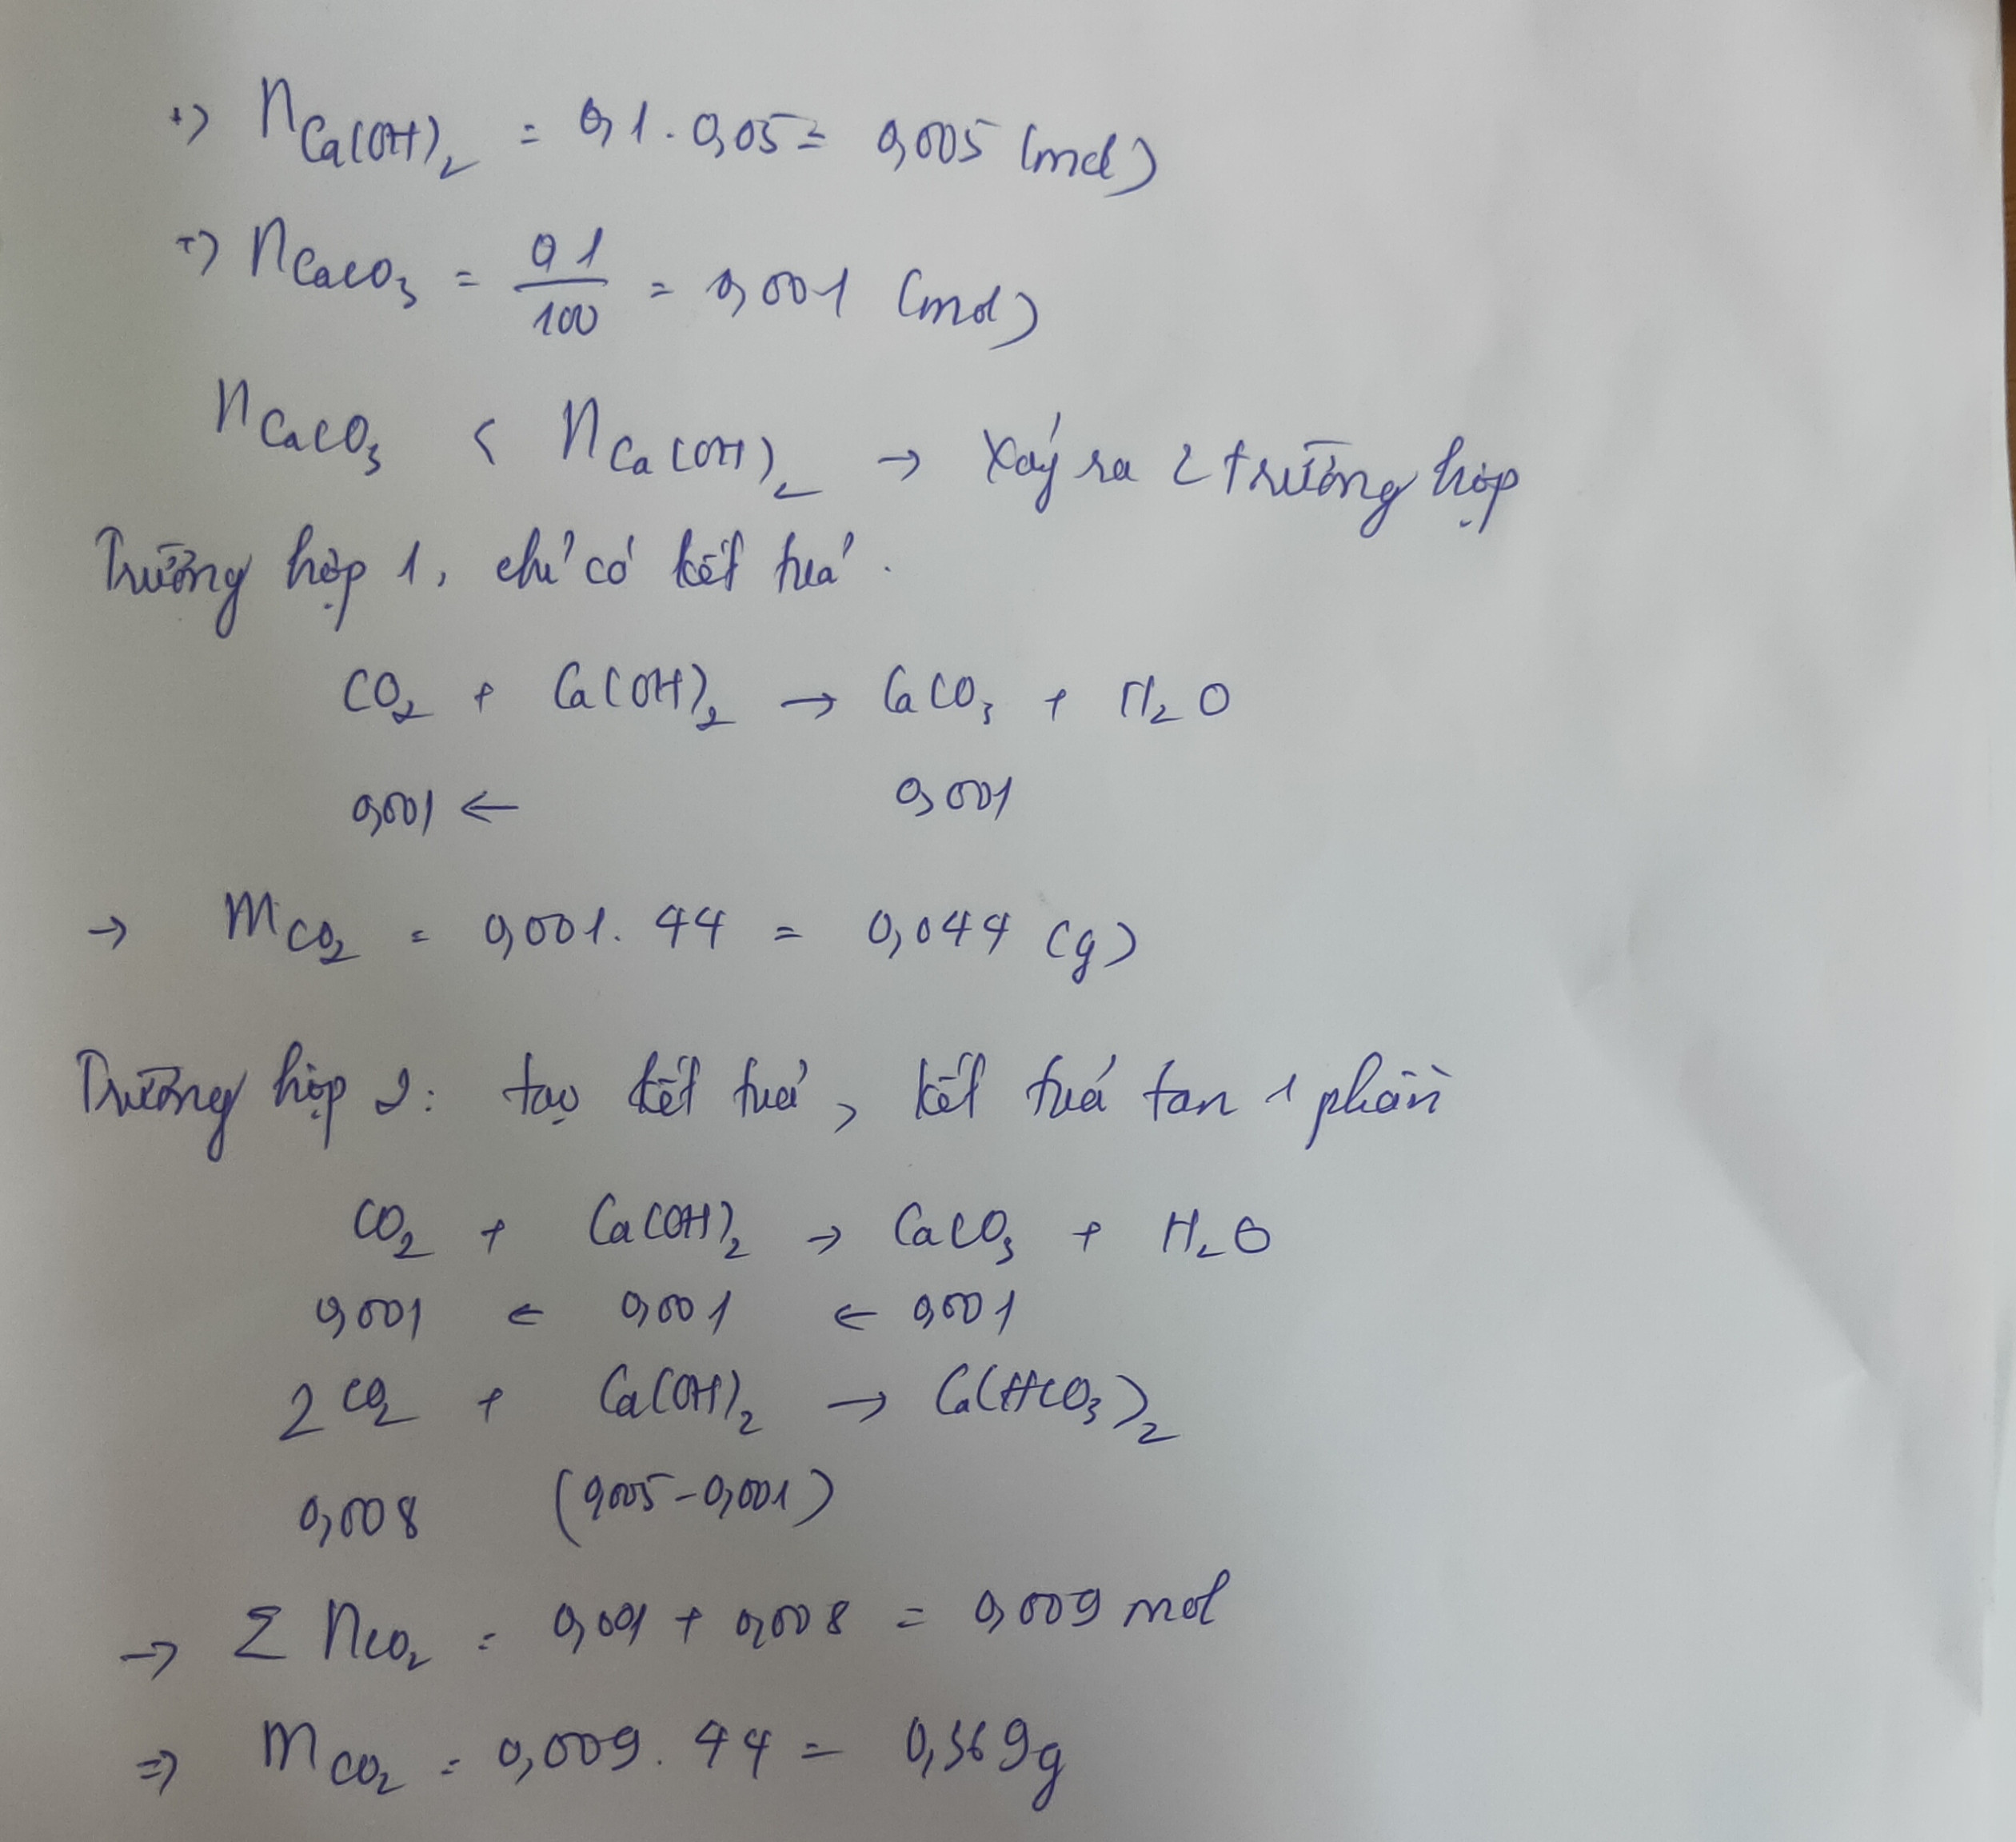 +) nCa(OH)₂ = 0,1 . 0,05 = 0,005 (mol)
+) nCaCO₃ = 0,1/100 = 0,001 (mol)
nCaCO₃ < nCa(OH)₂ → Xảy ra 2 trường hợp
Trường hợp 1, chỉ có kết tủa.
CO₂ + Ca(OH)₂ → CaCO₃ + H₂O
0,001 ← 0,001
→ mCO₂ = 0,001. 44 = 0,044 (g)
Trường hợp 2: tạo kết tủa, kết tủa tan 1 phần
CO₂ + Ca(OH)₂ → CaCO₃ + H₂O
0,001 ← 0,001 ← 0,001
2CO₂ + Ca(OH)₂ → Ca(HCO₃)₂
0,008 (0,005-0,001)
→ Σ nCO₂ = 0,001 + 0,008 = 0,009 mol
⇒ mCO₂ = 0,009. 44 = 0,369g